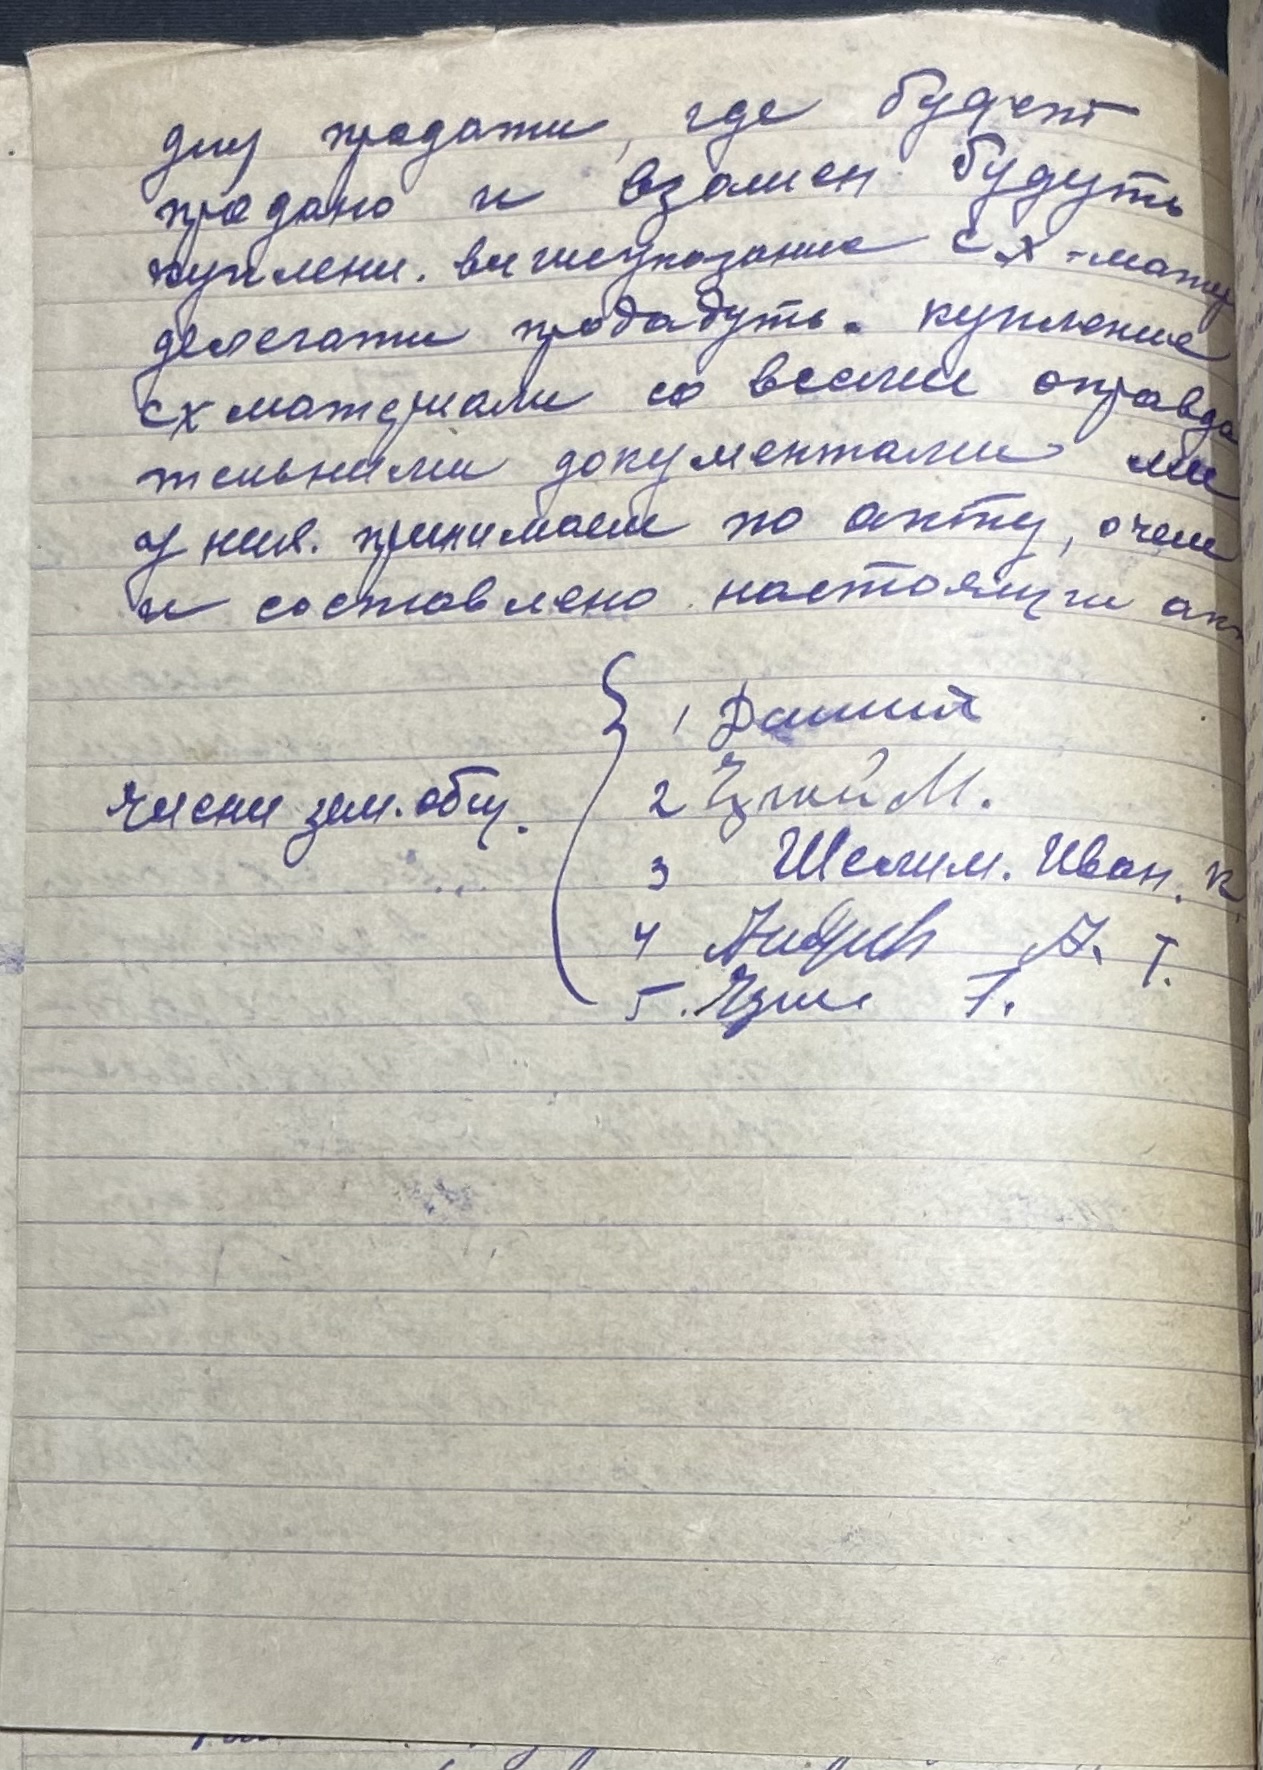 для продажи, где будет
продано и взамен будуть
куплени. вишеуказание с х -матер
делегати продадуть. купление
схматериали со всеми оправда
тельними документами ми
у них. принимаем по акту, очем
и составлено настоящи акт
члени зем. общ.
1
2 М.
3 Шелим. Иван. К
4 А. Т.
5.